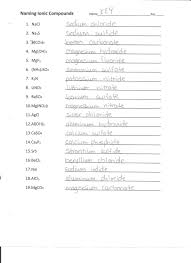 Naming Ionic Compounds Name KEY
1. NaCl sodium chloride
2. Na₂S sodium sulfide
carbonate
4. Mg(OH)₂ magnesium hydroxide
5. MgF₂ magnesium fluoride
6. (NH₄)₂SO₄ ammonium sulfate
7. K₃N potassium nitride
8. lithium nitrate
9. calcium sulfate
10. Mg(NO₃)₂ magnesium nitrate
11. AgCl silver chloride
12. Al(OH)₃ aluminum hydroxide
13. CaSO₄ calcium sulfate
14. calcium phosphide
15. SrS strontium sulfide
16. BeCl₂ beryllium chloride
17. NaI sodium iodide
18. aluminum sulfide
19. MgCO₃ magnesium carbonate